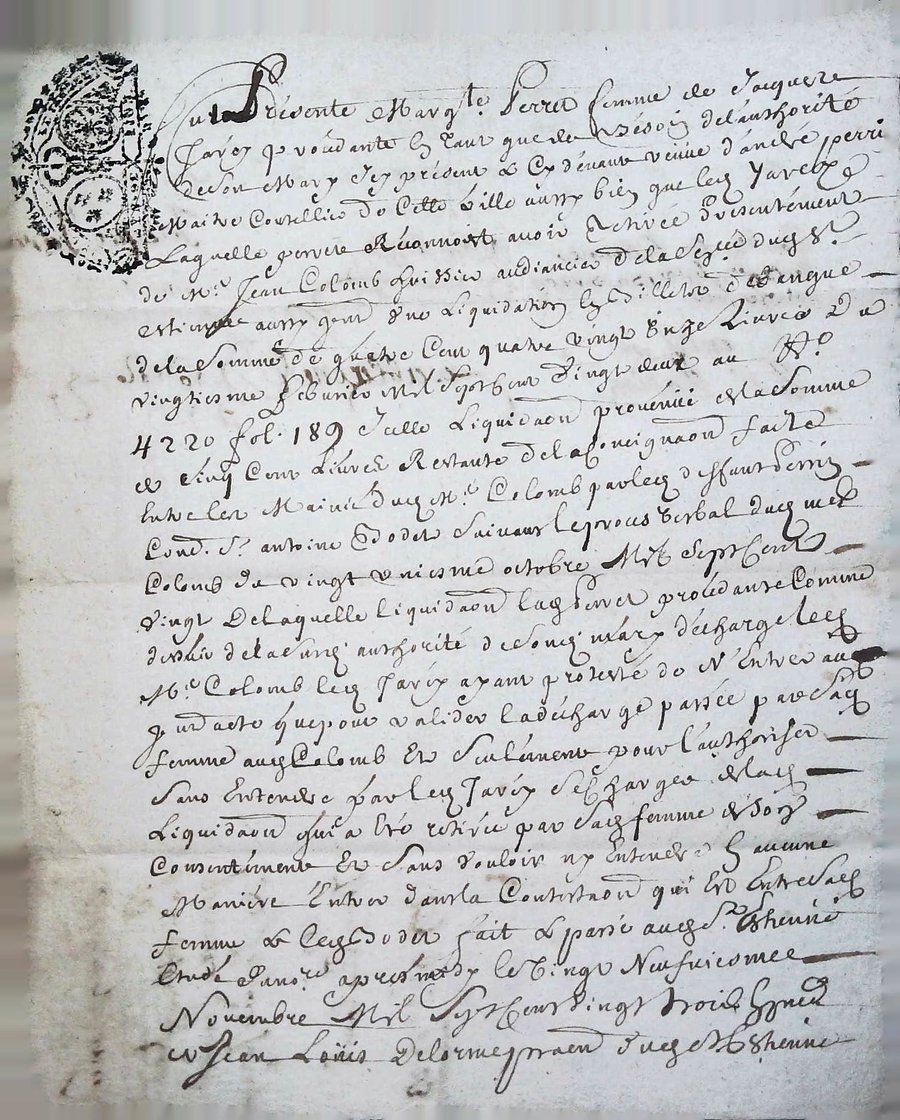 Présente Marg.te Perret femme de Jacques
Jarey procédante en tant que de Besoin de l'authorité
de son Mary Icy présent & Cy devant veuve d'andré perrin
Maitre Coutellier de Cette Ville aussy bien que led Jarey
Laquelle perret Reconnoist avoir Retirée présentement
de M.e Jean Colomb huissier audiancier de la dud S.t
estienne aussy présent une Liquidation En Billets de Banque
de la Somme de quatre Cent quatre vingt Onze Livres du
vingtiesme febvrier Mil Sept Cent Vingt deux au N.o
4220 fol. 189 Icelle Liquidaon provenüe de la Somme
de Cinq Cent Livres Restante de la Consignaon faite
Entre les Mains dud M.e Colomb par led deffunt Perrin
Cond. S.r antoine Dodet Suivant le procès Verbal dud
Colomb du vingt uniesme octobre Mil Sept Cent
vingt De laquelle liquidaon lad Perret procédante Comme
dessus de la authorité de son mary décharge led
M.e Colomb led Jarey ayant protesté de N'Entrer au
pnt acte que pour valider la décharge passée par sad
femme aud Colomb Et Seulement pour l'authoriser
Sans Entendre par led Jarey Se Charger de lad
Liquidaon qui a Eté retirée par Sad femme de Son
Consentement Et Sans Vouloir ny Entendre En aucune
Manière Entrer dans la Contestaon qui Est Entre Sad
femme & led Dodet fait & passé aud S.t Estienne
Etude après midy le Vingt Neufviesme
Novembre Mil Sept Cent Vingt trois
Jean Loüis Delorme praend dud S.t Estienne